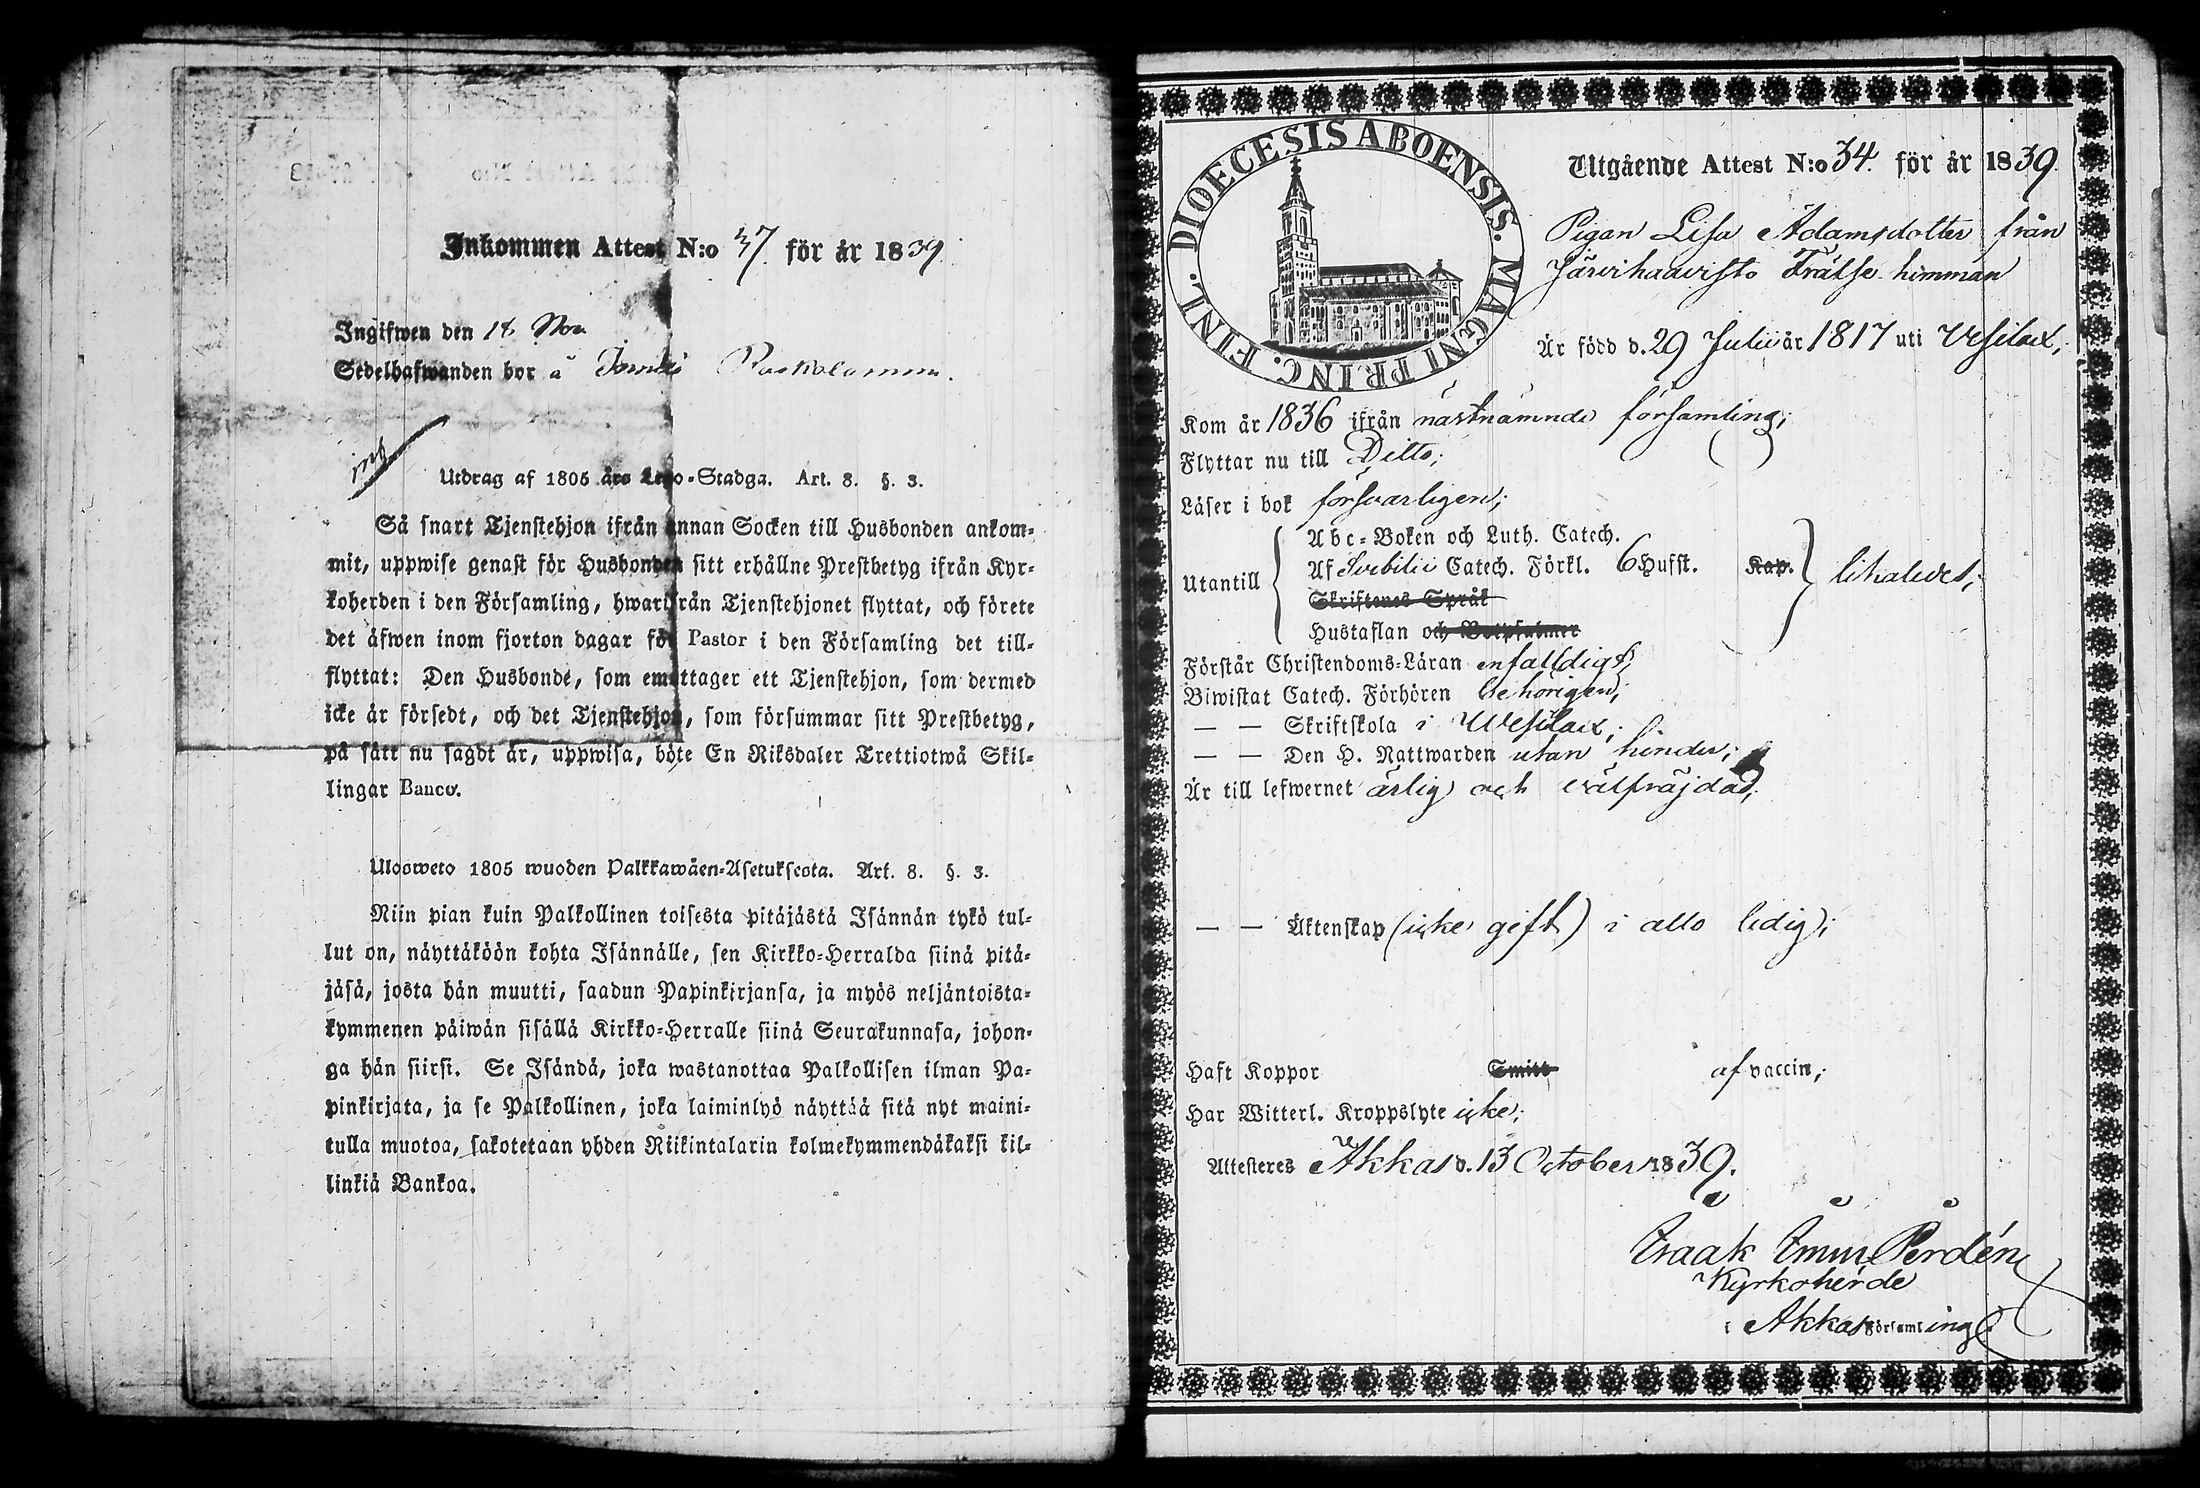 Inkommen Attest N:o 37 för år 1839.
Ingifwen den 18 Nov
Sedelhafwanden bor å
Utdrag af 1805 års Lego-Stadga. Art. 8. §. 3.
Så snart Tjenstehjon ifrån annan Socken till Husbonden ankom-
mit, uppwise genast för Husbonden sitt erhållne Prestbetyg ifrån Kyr-
koherden i den Församling, hwarifrån Tjenstehjonet flyttat, och förete
det äfwen inom fjorton dagar för Pastor i den Församling det till-
flyttat: Den Husbonde, som emottager ett Tjenstehjon, som dermed
icke är försedt, och det Tjenstehjon, som försummar sitt Prestbetyg,
på sätt nu sagdt är, uppwisa, böte En Riksdaler Trettiotwå Skil-
lingar Banco.
Ulosweto 1805 wuoden Palkkawäen-Asetuksesta. Art. 8. §. 3.
Niin pian kuin Palkollinen toisesta pitäjästä Isännän tykö tul-
lut on, näyttäköön kohta Isännälle, sen Kirkko-Herralda siinä pitä-
jäsä, josta hän muutti, saadun Papinkirjansa, ja myös neljäntoista-
kymmenen päiwän sisällä Kirkko-Herralle siinä Seurakunnasa, johon-
ga hän siirsi. Se Isändä, joka wastanottaa Palkollisen ilman Pa-
pinkirjata, ja se Palkollinen, joka laiminlyö näyttää sitä nyt maini-
tulla muotoa, sakotetaan yhden Riikintalarin kolmekymmendäkaksi kil-
linkiä Bankoa.
DIOECESIS ABOENSIS. MAGNI PRINC. FINL.
Utgående Attest N:o 34. för år 1839.
Pigan Lisa Adamsdotter från
Järvihaavisto Frälse hemman
Är född d. 29 Julii år 1817 uti Vesilax,
Kom år 1836 ifrån nästnämnde församling;
Flyttar nu till Ditto;
Läser i bok försvarligen;
Utantill
Abc-Boken och Luth. Catech.
Af Svebilii Catech. Förkl. 6 Hufst. Kap. likaledes;
Skriftenes Språk
Hustaflan och Botpsalmer
Förstår Christendoms-Läran enfaldigt;
Biwistat Catech. Förhören behörigen;
— — Skriftskola i Wesilax;
— — Den H. Nattwarden utan hinder;
Är till lefwernet ärlig och välfräjdad;
— — Äktenskap (icke gift) i allo ledig;
Haft Koppor Smitt af vaccin;
Har Witterl. Kroppslyte icke;
Attesteres Akkas d. 13 October 1839.
Isaak Imm. Perdén
Kyrkoherde
i Akkas Församling.